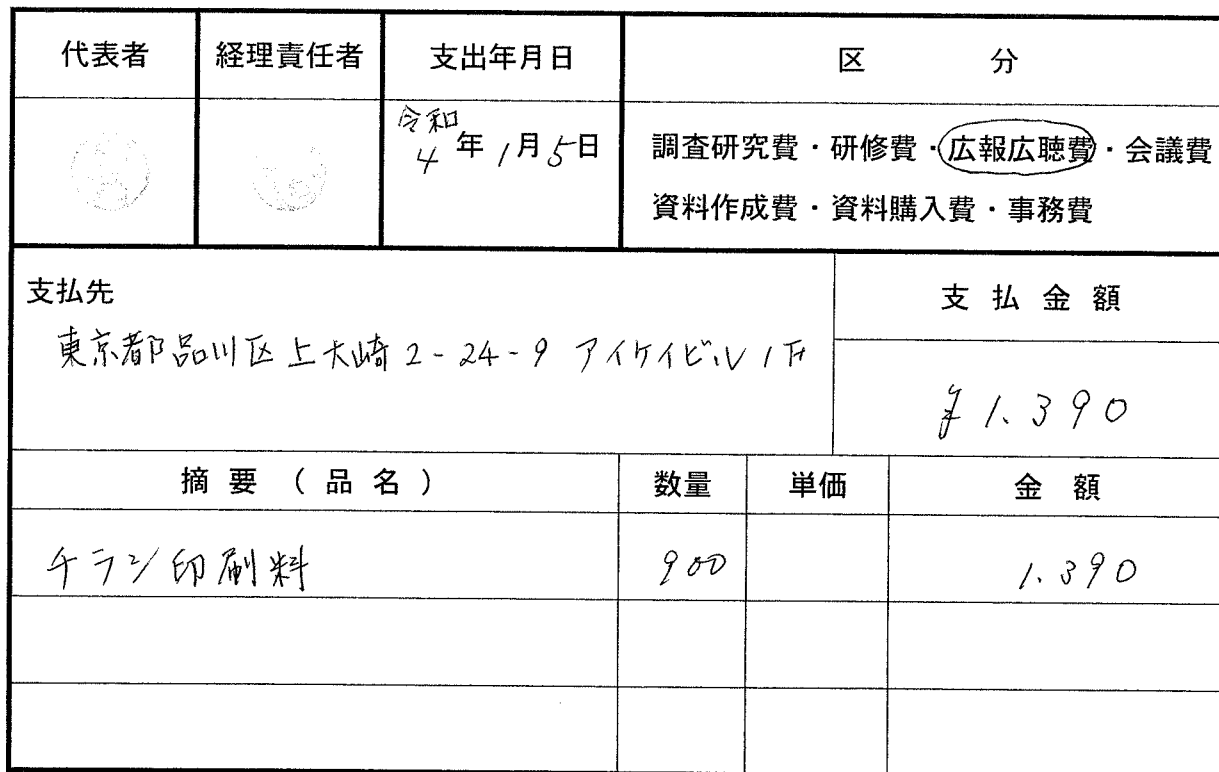 代表者 経理責任者 支出年月日 区 分
令和
4年1月5日
調査研究費・研修費・広報広聴費・会議費
資料作成費・資料購入費・事務費
支払先
東京都品川区上大崎2-24-9 アイケイビル1F
支払金額
¥1.390
摘要(品名) 数量 単価 金額
チラシ印刷料 900 1.390